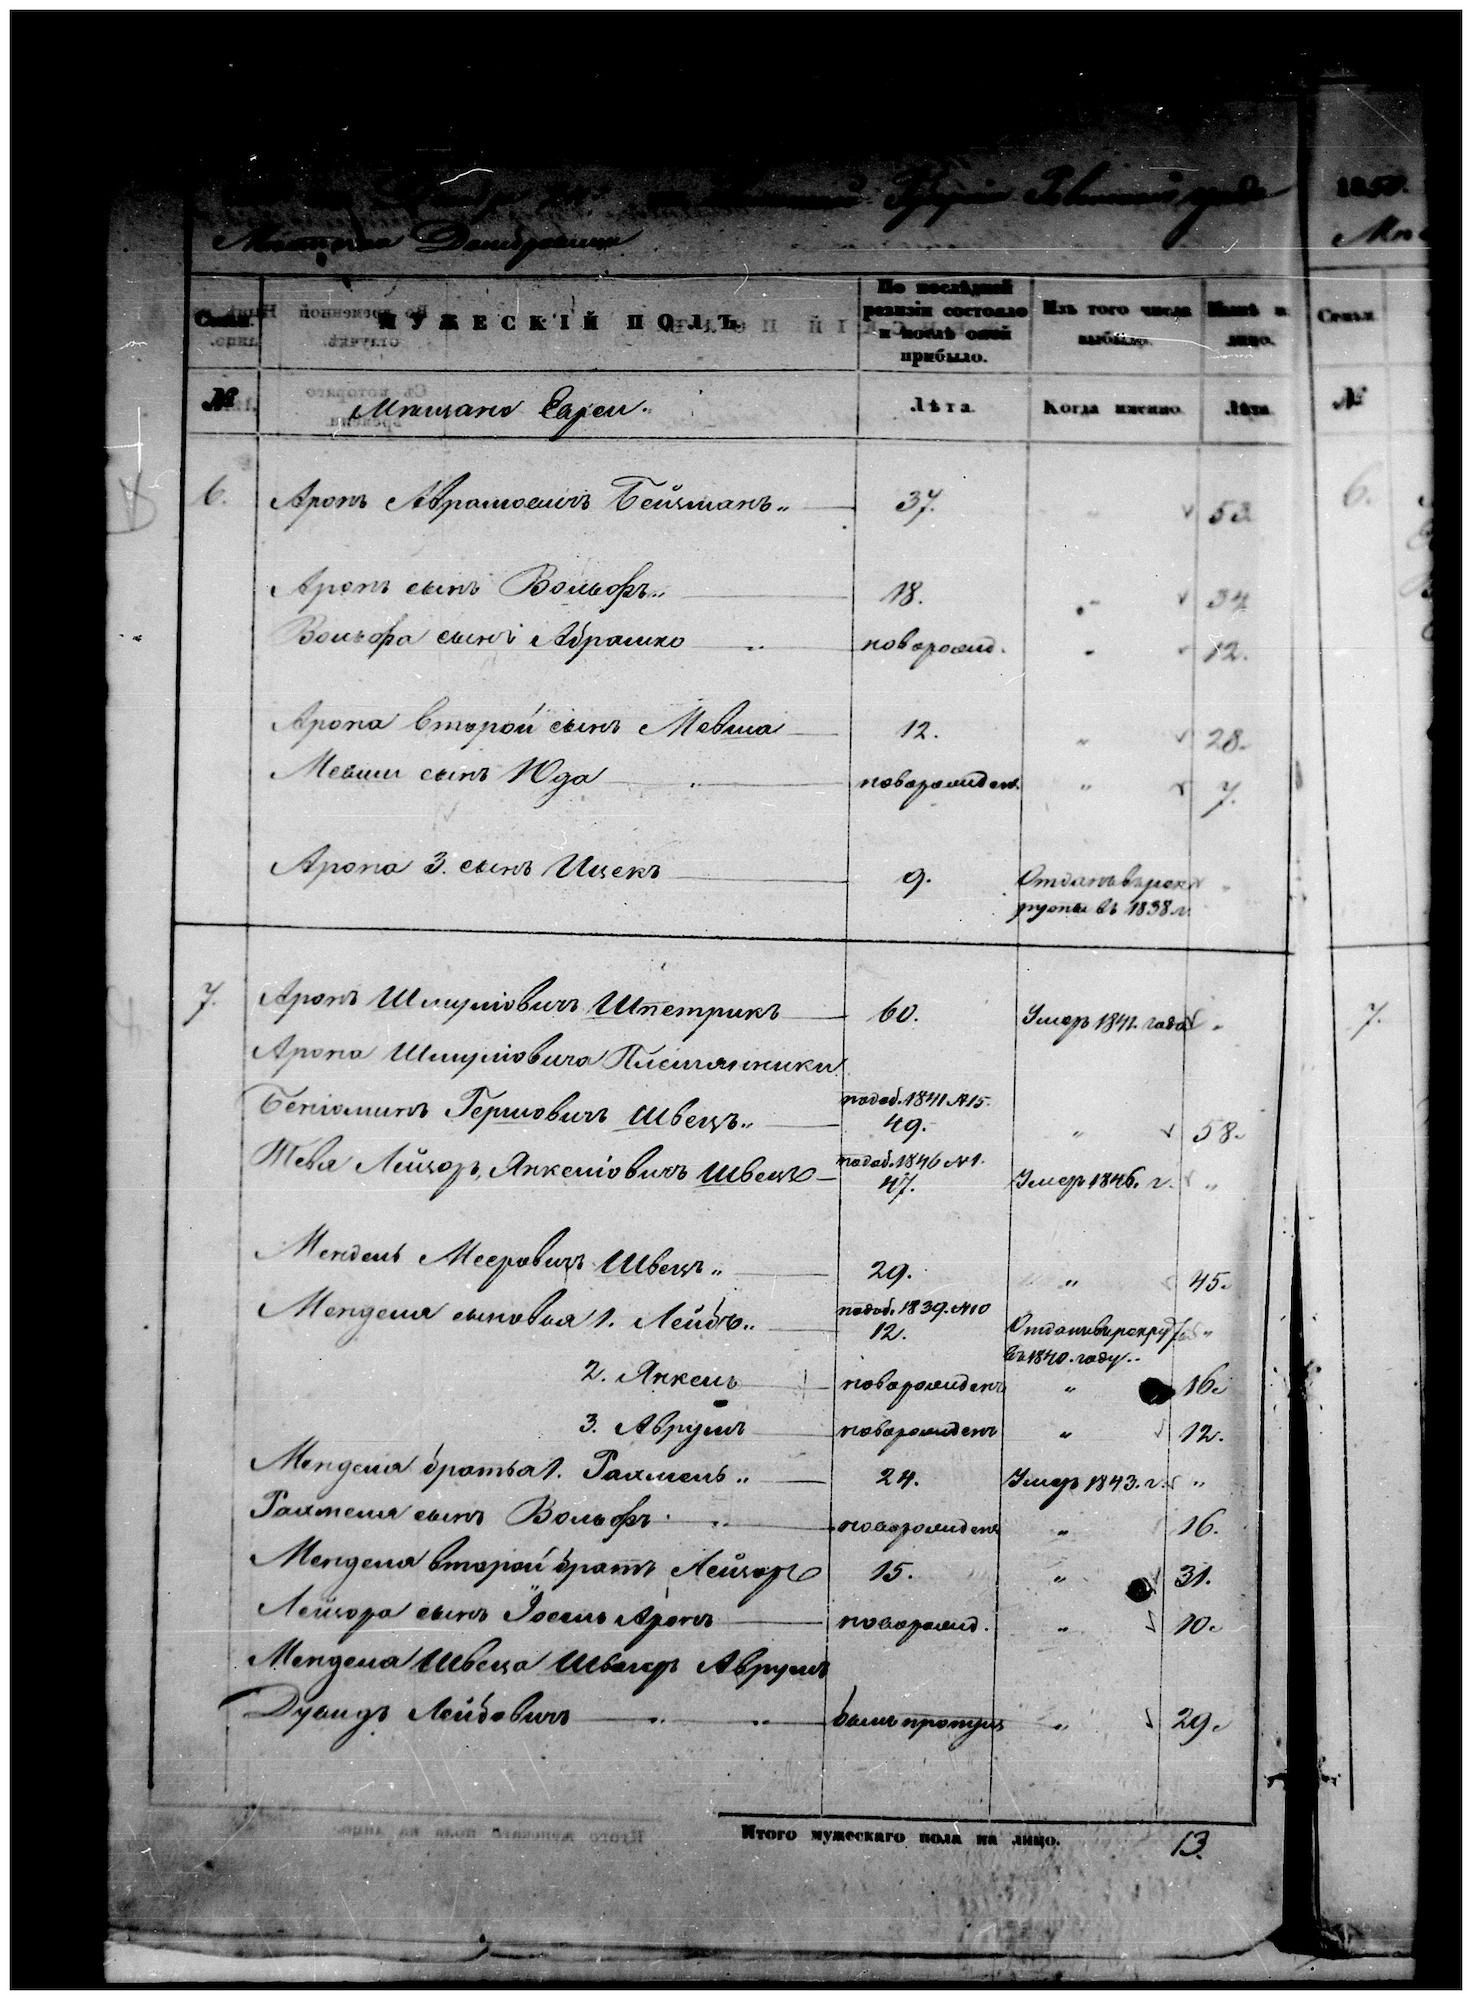 Губерніи Ровенскаго уезда
Мѣстечка Домбровица
1850.
Семьи.
МУЖЕСКІЙ ПОЛЪ.
По послѣдней ревизіи состояло и послѣ оной прибыло.
Изъ того числа выбыло.
Нынѣ на лицо.
Семьи.
№
Мѣщане Евреи.
Лѣта.
Когда именно.
Лѣта.
№
6. Аронъ Аврамовичъ Бейцманъ „ 37. „ 53. 6.
Аронъ сынъ Вольфъ „ 18. „ 34
Вольфа сынъ Абрамко „ новорожд. „ 12.
Арона второй сынъ Мевша 12. „ 28.
Мевши сынъ Юда „ новорожден. „ 7.
Арона 3. сынъ Ицекъ 9. Отданъ въ рек „
руты въ 1838 г.
7. Аронъ Шмуліовичъ Штетрикъ 60. Умеръ 1841. года „ 7.
Арона Шмуліовича Племянники
подоб. 1841 №15.
Беніоминъ Гершовичъ Швецъ „ 49. „ 58.
подоб. 1846 №1.
Тевя Лейзоръ, Янкеліовичъ Швецъ 47. Умеръ 1846. г. „
Мендель Мееровичъ Швецъ „ 29. „ 45.
подоб. 1839. №10
Менделя сыновья 1. Лейбъ „ 12. Отданъ въ рекру „
въ 1840. году „
2. Янкель новорожденъ „ 16.
3. Аврумъ новорожденъ „ 12.
Менделя братья 1. Рахмель „ 24. Умеръ 1843. г. „
Рахмеля сынъ Вольфъ „ новорожденъ „ 16.
Менделя второй братъ Лейзоръ 15. „ 31.
Лейзора сынъ Іосель Аронъ новорожд. „ 10.
Менделя Швеца Швагеръ Аврумъ
Дувидъ Лейбовичъ „ „ былъ пропущ „ 29.
Итого мужескаго пола на лицо. 13.